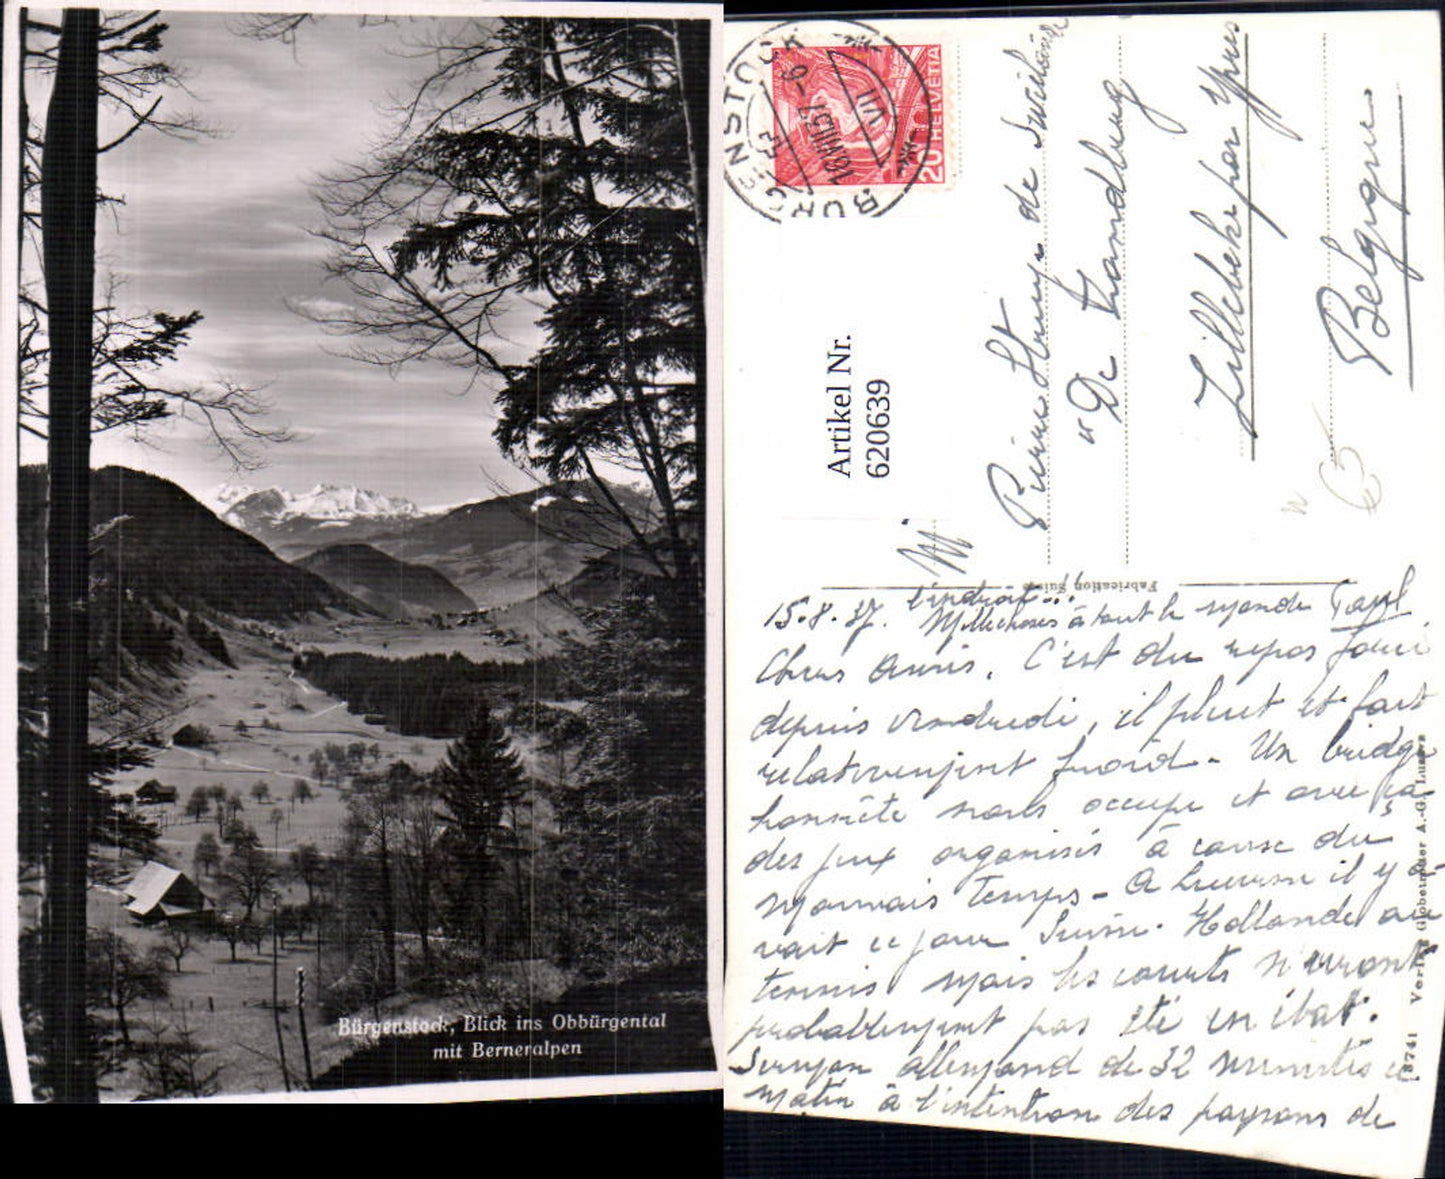 Bürgenstock, Blick ins Obbürgental
mit Berneralpen
BÜRGENSTOCK
16 VIII 37 - 9
VII
20 HELVETIA
Artikel Nr.
620639
de
"De Zandberg
Lillebeke par Ypres
Belgique
Fabrication Suisse
l'endroit...
15.8.37. Mille choses à tout le monde Paul
Chers Amis, C'est du repos forcé
depuis vendredi, il pleut et fait
relativement froid - Un bridge
honnête nous occupe et avec ça
des jeux organisés à cause du
mauvais temps - A Lucerne il y a-
vait ce jour Suisse-Hollande au
tennis mais les courts n'auront
probablement pas été en état.
Sermon allemand de 32 minutes ce
matin à l'intention des paysans de
18741 Verlag Globetrotter A.-G., Luzern